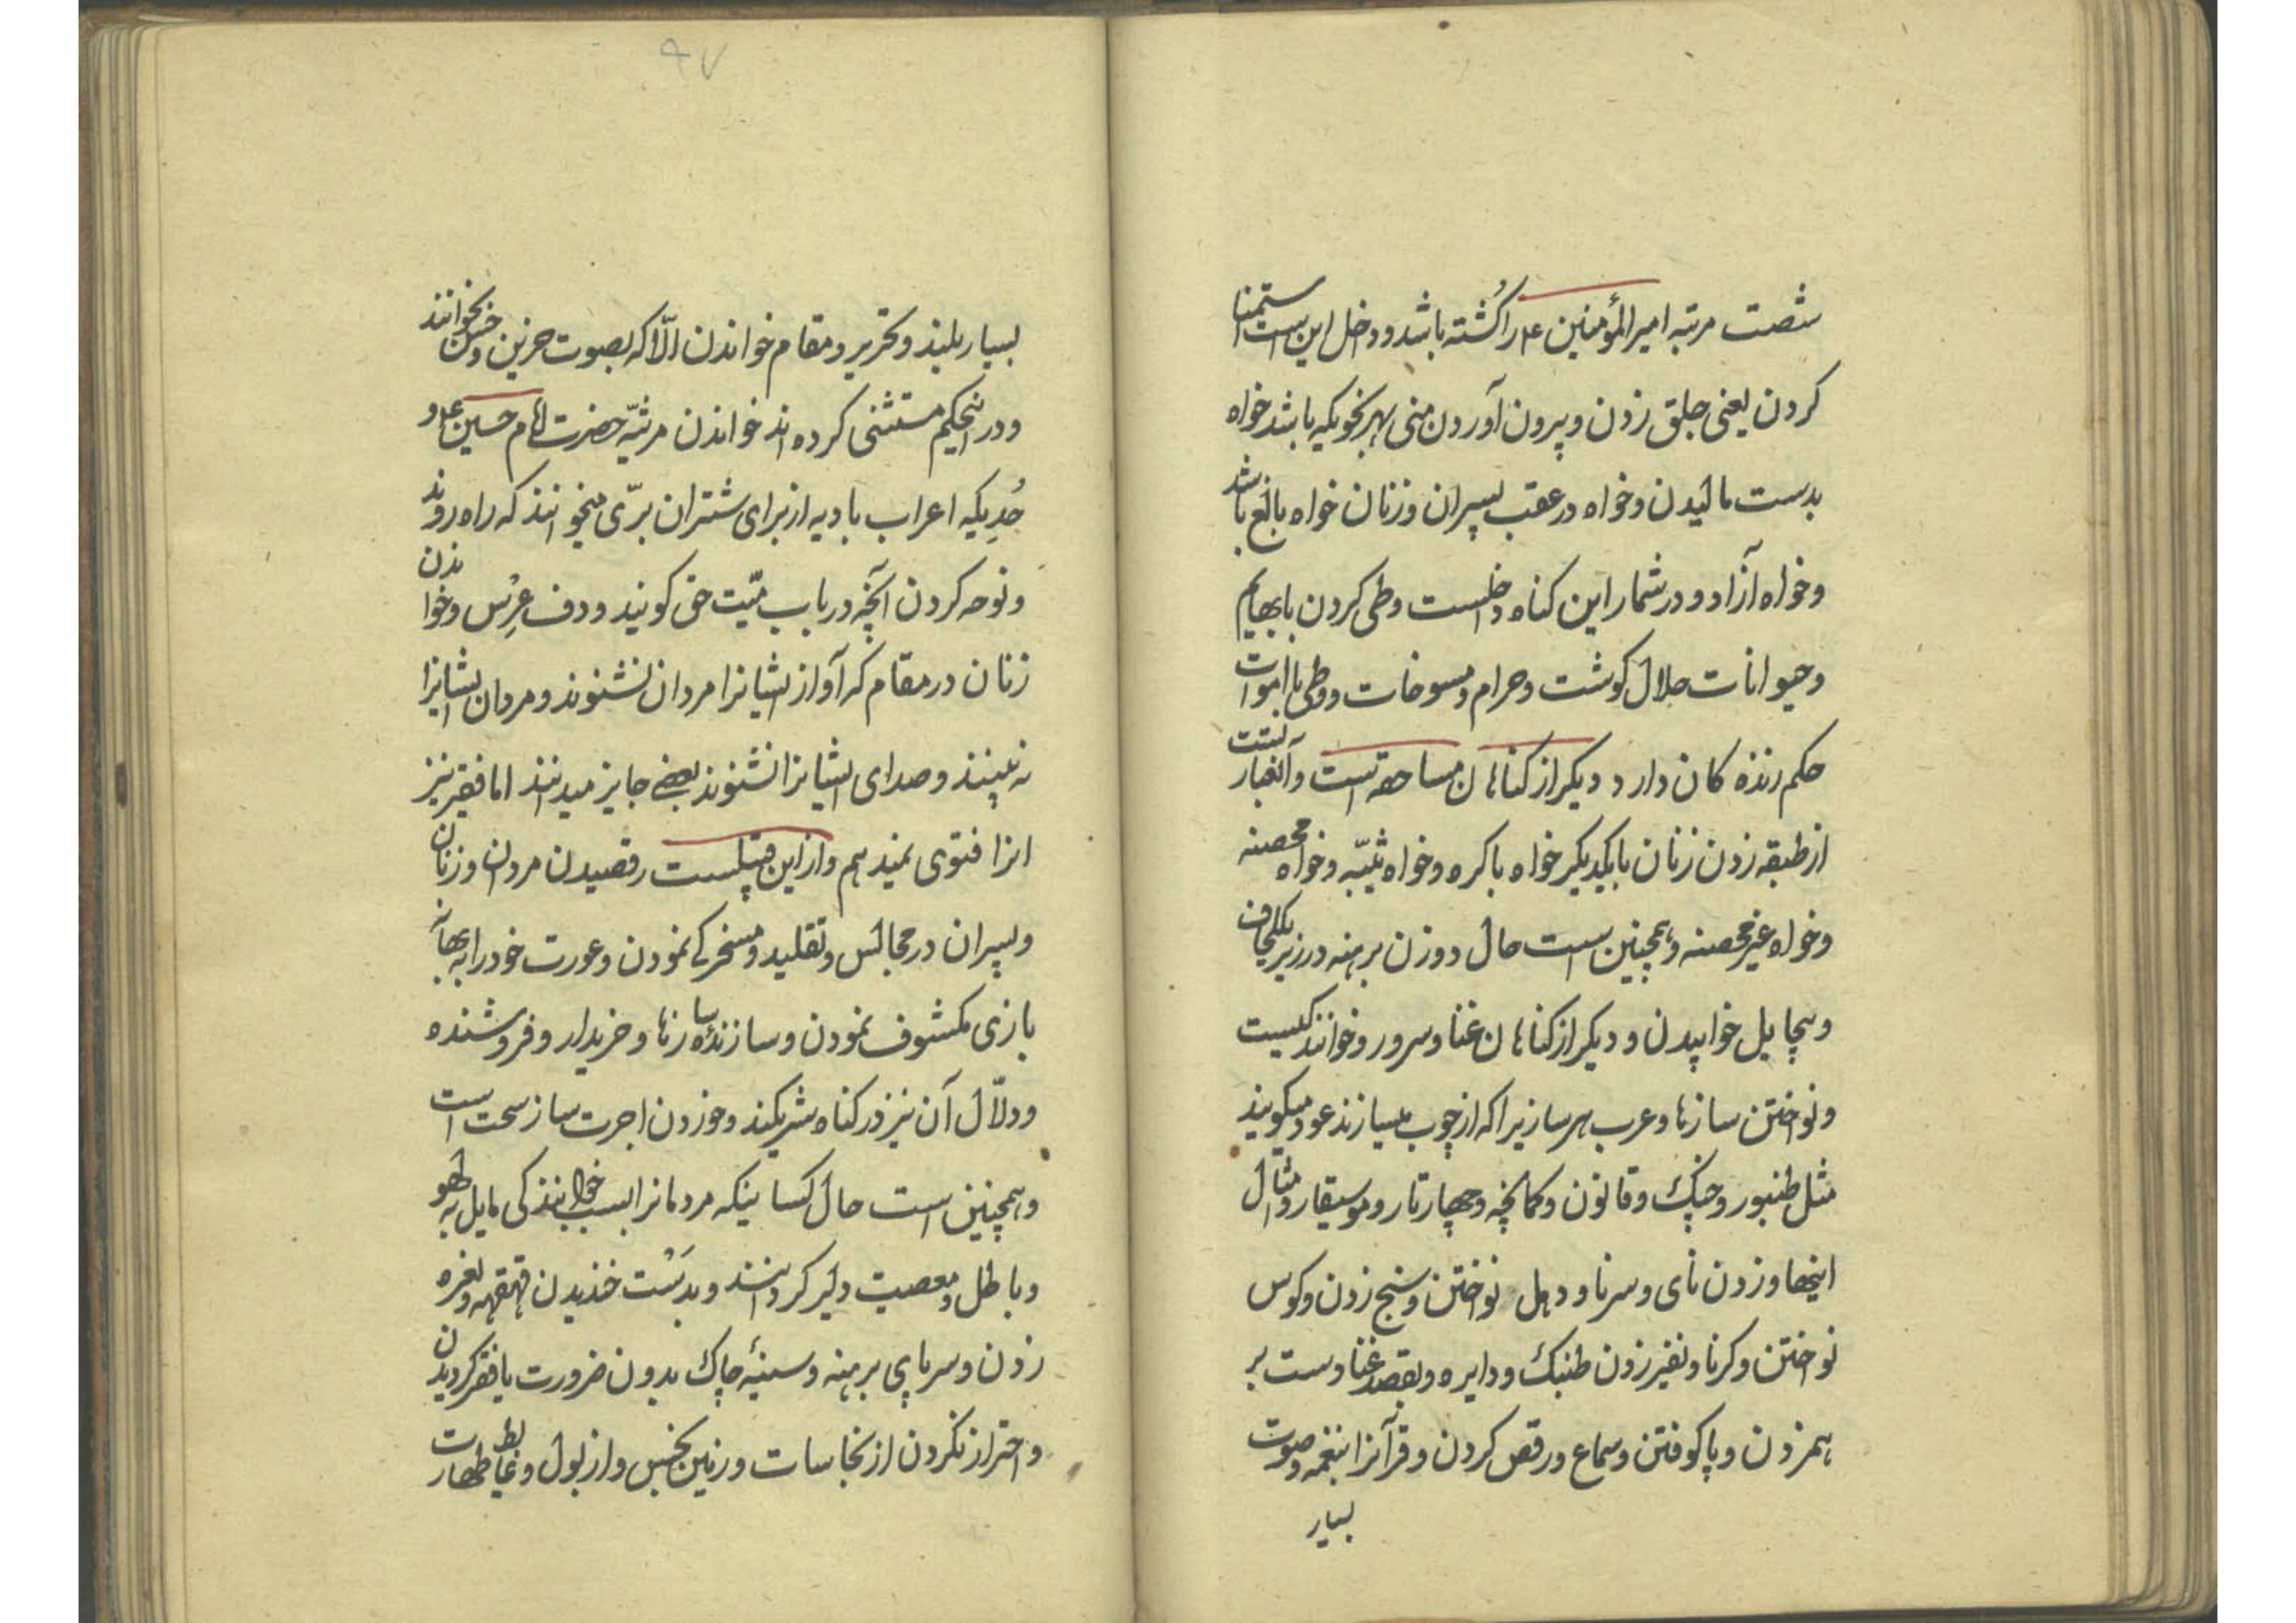 شصت مرتبه امیرالمؤمنین ع را کُشته باشد و داخل این است استمنا
کردن یعنی جلق زدن و بیرون آوردن منی بهر نحویکه باشد خواه
بدست مالیدن و خواه در عقب پسران و زنان خواه بالغ باشد
و خواه آزاد و در شمار این کناه داخلست وطی کردن با بهایم
و حیوانات حلال کوشت و حرام و مسوخات و وطی با اموات
حکم زنده کان دارد و دیکر از کناهان مساحقه است و آن عبارتست
از طبقه زدن زنان با یکدیکر خواه باکره و خواه ثیّبه و خواه محصنه
و خواه غیر محصنه و همچنین است حال دو زن برهنه در زیر یکلحاف
و بیحایل خوابیدن و دیکر از کناهان غنا و سرود و خوانندکیست
و نواختن سازها و عرب هر سازیرا که از چوب میسازند عود میکویند
مثل طنبور و چنک و قانون و کمانچه و چهارتار و موسیقار و امثال
اینها و زدن نای و سرنا و دهل نواختن و سنج زدن و کوس
نواختن و کرنا و نفیر زدن طنبک و دایره و بقصد غنا دست بر
همزدن و پا کوفتن و سماع و رقص کردن و قرآنرا بنغمه و صوت
بسیار
۹۷
بسیار بلند و تحریر و مقام خواندن الّا که بصوت حزین و حسن بخوانند
و در اینحکم مستثنی کرده اند خواندن مرثیّه حضرت امام حسین ع و
حُدِیکه اعراب بادیه از برای شتران برّی میخوانند که راه روند
و نوحه کردن آنچه در باب میّت حق کویند و دف عرس و خواندن
زنان در مقام که آواز ایشانرا مردان نشنوند و مردان ایشانرا
نه بینند و صدای ایشانرا نشنوند بعضی جایز میدانند اما فقیر نیز
انرا فتوی نمیدهم و از این قبیلست رقصیدن مردان و زنان
و پسران در مجالس و تقلید و مسخرکی نمودن و عورت خود را به بهانه
بازی مکشوف نمودن و سازندۀ سازها و خریدار و فروشنده
و دلّال آن نیز در کناه شریکند و خوردن اجرت ساز سحت است
و همچنین است حال کسانیکه مردمانرا بسبب خوانندکی مایل به لهو
و باطل و معصیت دلیر کردانند و بدَسْت خندیدن قهقهه و نعره
زدن و سر و پای برهنه و سینۀ چاک بدون ضرورت یا فقر کردیدن
و احتراز نکردن از نجاسات و زمین نجس و از بول و غایط طهارت